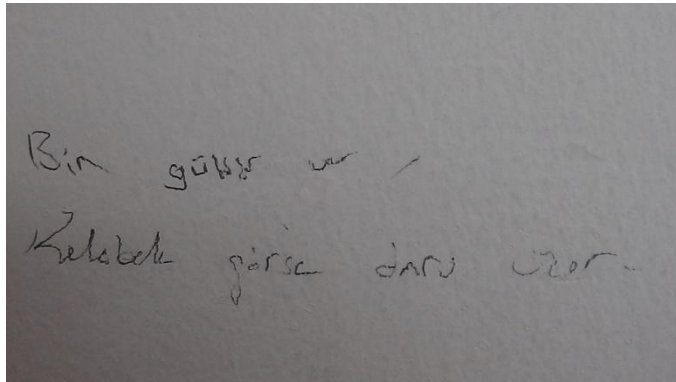 Bir gülüşü var,
Kelebek görse ömrü uzar.